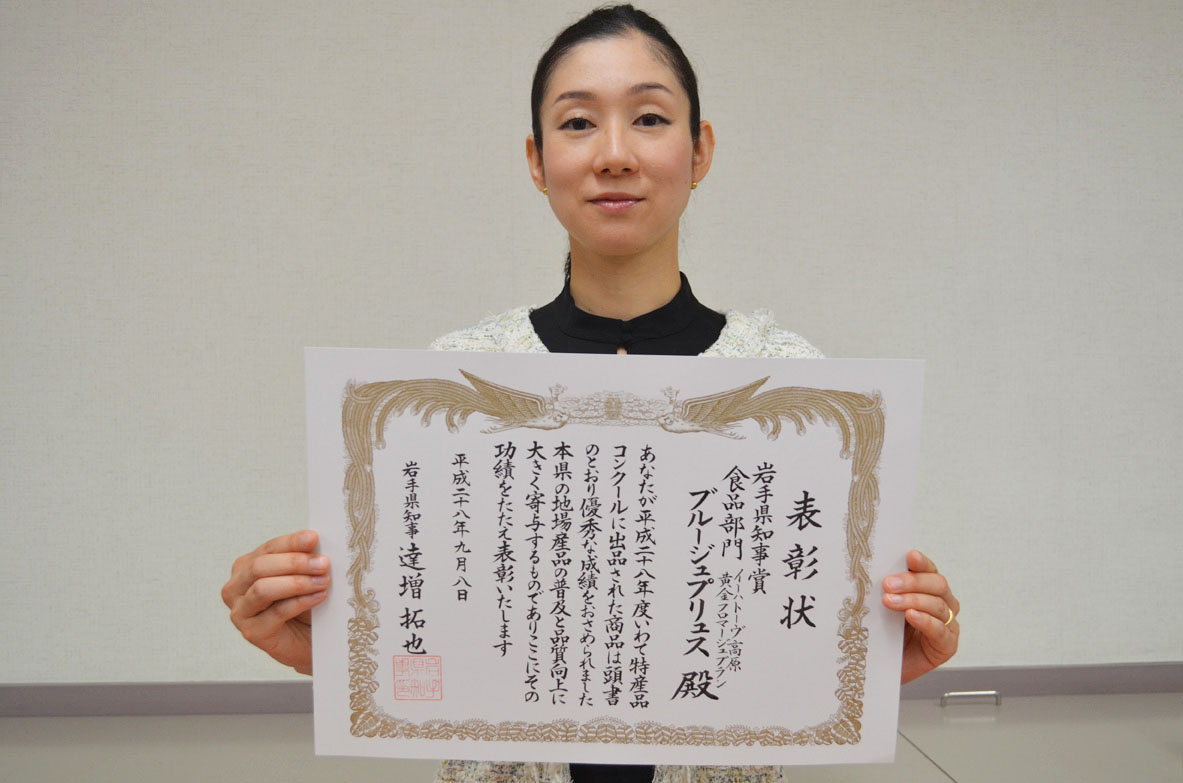 表彰状
岩手県知事賞
食品部門 イーハトーヴ高原
黄金フロマージュブラン
ブルージュプリュス 殿
あなたが平成二十八年度いわて特産品
コンクールに出品された商品は頭書
のとおり優秀な成績をおさめられました
本県の地場産品の普及と品質向上に
大きく寄与するものでありここにその
功績をたたえ表彰いたします
平成二十八年九月八日
岩手県知事 達増拓也